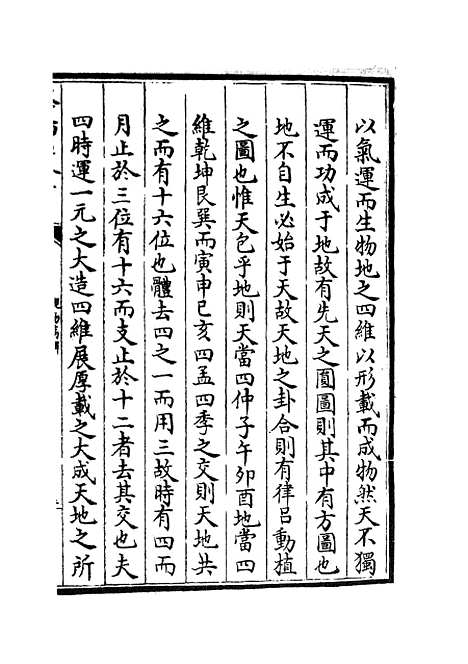 以氣運而生物地之四維以形載而成物然天不獨
運而功成于地故有先天之圓圖則其中有方圖也
地不自生必始于天故天地之卦合則有律吕動植
之圖也惟天包乎地則天當四仲子午卯酉地當四
維乾坤艮巽而寅申巳亥四孟四季之交則天地共
之而有十六位也體去四之一而用三故時有四而
月止於三位有十六而支止於十二者去其交也夫
四時運一元之大造四維展厚載之大成天地之所